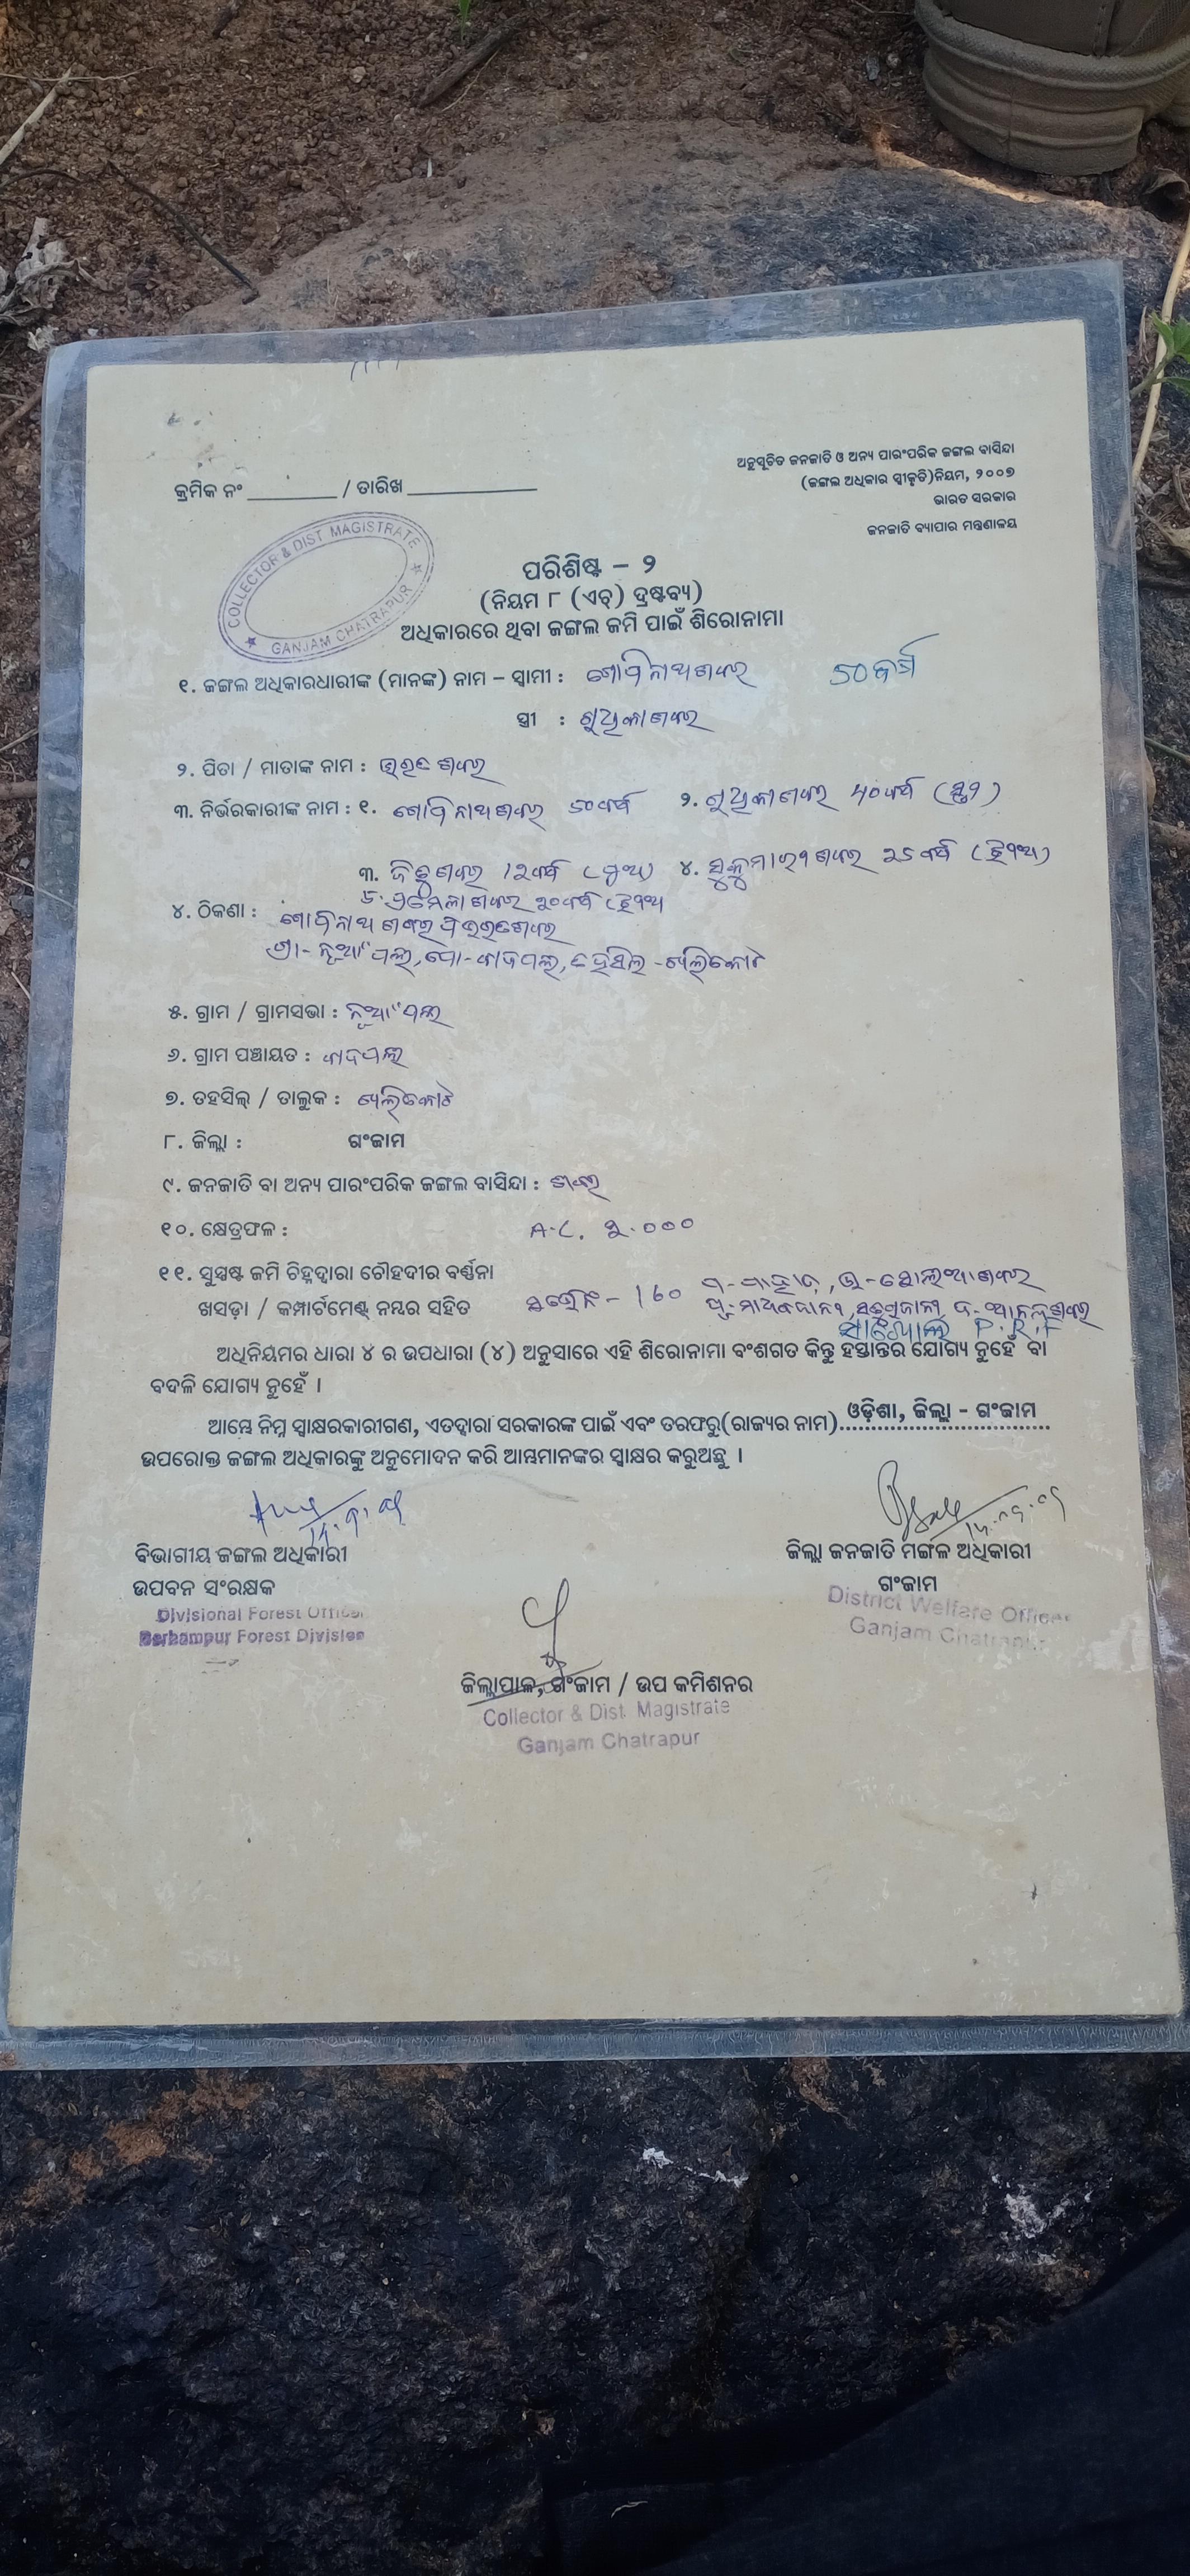 ଅନୁସୂଚିତ ଜନଜାତି ଓ ଅନ୍ୟ ପାରଂପରିକ ଜଙ୍ଗଲ ବାସିନ୍ଦା
(ଜଙ୍ଗଲ ଅଧିକାର ସ୍ୱୀକୃତି)ନିୟମ, ୨୦୦୭
ଭାରତ ସରକାର
ଜନଜାତି ବ୍ୟାପାର ମନ୍ତ୍ରଣାଳୟ
କ୍ରମିକ ନଂ ________ / ତାରିଖ ____________
COLLECTOR & DIST MAGISTRATE
GANJAM CHATRAPUR
ପରିଶିଷ୍ଟ – ୨
(ନିୟମ ୮ (ଏଚ୍) ଦ୍ରଷ୍ଟବ୍ୟ)
ଅଧିକାରରେ ଥିବା ଜଙ୍ଗଲ ଜମି ପାଇଁ ଶିରୋନାମା
୧. ଜଙ୍ଗଲ ଅଧିକାରଧାରୀଙ୍କ (ମାନଙ୍କ) ନାମ – ସ୍ୱାମୀ : ଗୋପିନାଥ ଶବର 50 ବର୍ଷ
ସ୍ତ୍ରୀ :
୨. ପିତା / ମାତାଙ୍କ ନାମ : ଭରତ ଶବର
୩. ନିର୍ଭରକାରୀଙ୍କ ନାମ : ୧. ଗୋପିନାଥ ଶବର 50 ବର୍ଷ ୨. ଶବର ୪୦ ବର୍ଷ (ସ୍ତ୍ରୀ)
୩. ଶବର 12 ବର୍ଷ (ପୁଅ) ୪. ସୁକୁମାରୀ ଶବର ୨5 ବର୍ଷ (ଝିଅ)
ଶବର ୨୦ ବର୍ଷ
୪. ଠିକଣା : ଗୋପିନାଥ ଶବର
ଗ୍ରା- ନୂଆପଲ୍ଲୀ, ତହସିଲ - ଖଲିକୋଟ
୫. ଗ୍ରାମ / ଗ୍ରାମସଭା : ନୂଆପଲ୍ଲୀ
୬. ଗ୍ରାମ ପଞ୍ଚାୟତ :
୭. ତହସିଲ୍ / ତାଲୁକ : ଖଲିକୋଟ
୮. ଜିଲ୍ଲା : ଗଂଜାମ
୯. ଜନଜାତି ବା ଅନ୍ୟ ପାରଂପରିକ ଜଙ୍ଗଲ ବାସିନ୍ଦା : ଶବର
୧୦. କ୍ଷେତ୍ରଫଳ : A.C.
୧୧. ସୁସ୍ପଷ୍ଟ ଜମି ଚିହ୍ନଦ୍ୱାରା ଚୌହଦୀର ବର୍ଣ୍ଣନା
ଖସଡ଼ା / କମ୍ପାର୍ଟମେଣ୍ଟ୍ ନମ୍ବର ସହିତ 160
P.R.F
ଅଧିନିୟମର ଧାରା ୪ ର ଉପଧାରା (୪) ଅନୁସାରେ ଏହି ଶିରୋନାମା ବଂଶଗତ କିନ୍ତୁ ହସ୍ତାନ୍ତର ଯୋଗ୍ୟ ନୁହେଁ ବା
ବଦଳି ଯୋଗ୍ୟ ନୁହେଁ ।
ଆମ୍ଭେ ନିମ୍ନ ସ୍ୱାକ୍ଷରକାରୀଗଣ, ଏତଦ୍ୱାରା ସରକାରଙ୍କ ପାଇଁ ଏବଂ ତରଫରୁ(ରାଜ୍ୟର ନାମ) ଓଡ଼ିଶା, ଜିଲ୍ଲା - ଗଂଜାମ
ଉପରୋକ୍ତ ଜଙ୍ଗଲ ଅଧିକାରଙ୍କୁ ଅନୁମୋଦନ କରି ଆମ୍ଭମାନଙ୍କର ସ୍ୱାକ୍ଷର କରୁଅଛୁ ।
ବିଭାଗୀୟ ଜଙ୍ଗଲ ଅଧିକାରୀ
ଉପବନ ସଂରକ୍ଷକ
Divisional Forest Officer
Berhampur Forest Division
ଜିଲ୍ଲା ଜନଜାତି ମଙ୍ଗଳ ଅଧିକାରୀ
ଗଂଜାମ
District Welfare Officer
Ganjam Chatrapur
ଜିଲ୍ଲାପାଳ, ଗଂଜାମ / ଉପ କମିଶନର
Collector & Dist. Magistrate
Ganjam Chatrapur